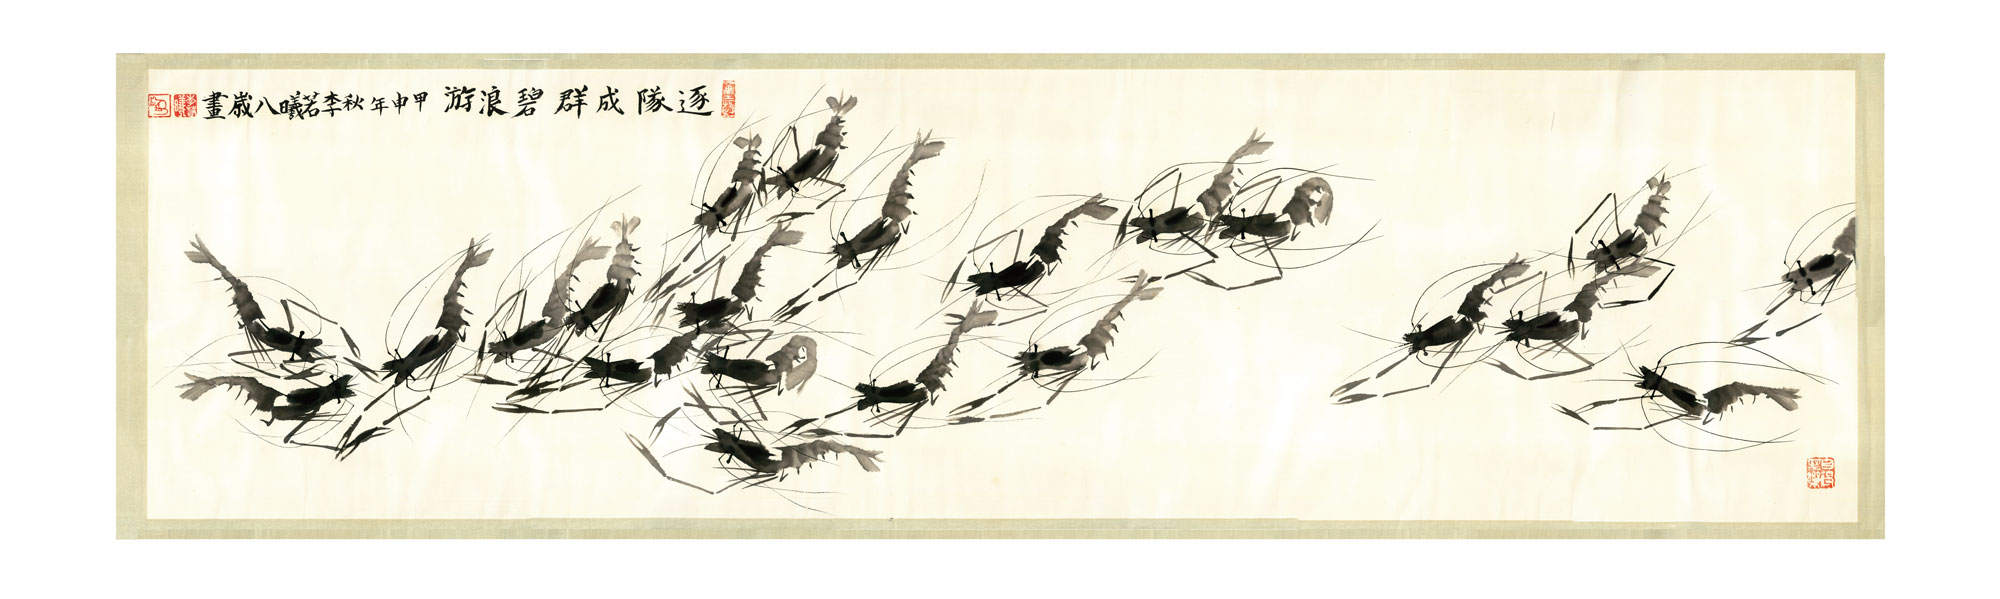 逐隊成群碧浪游 甲申年秋李若曦八歲畫